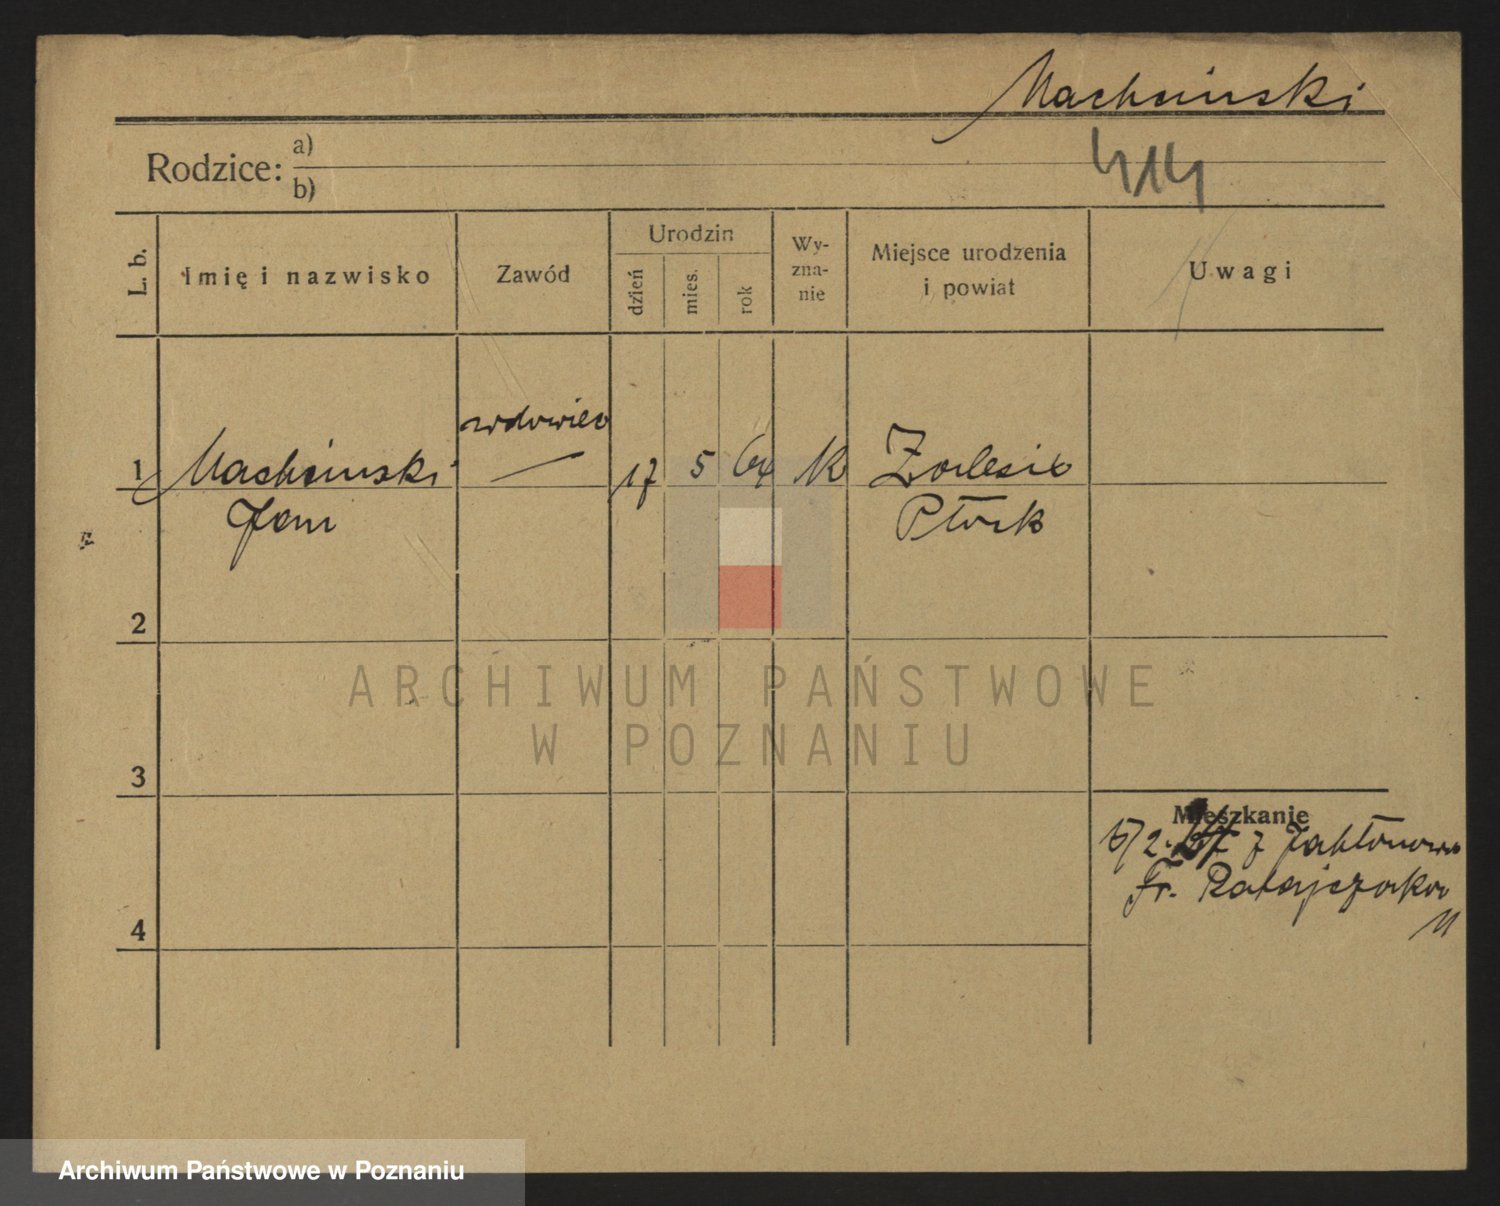 Machcinski
Rodzice: a)
b)
414
L. b.
Imię i nazwisko
Zawód
Urodzin
dzień
mies.
rok
Wy-
zna-
nie
Miejsce urodzenia
i powiat
Uwagi
wdowiec
1 Machcinski — 17 5 64 K Zalesie
Jan Płock
2
3
4
Mieszkanie
z Jabłonowa
Fr. Ratajczaka
11
ARCHIWUM PAŃSTWOWE
W POZNANIU
Archiwum Państwowe w Poznaniu